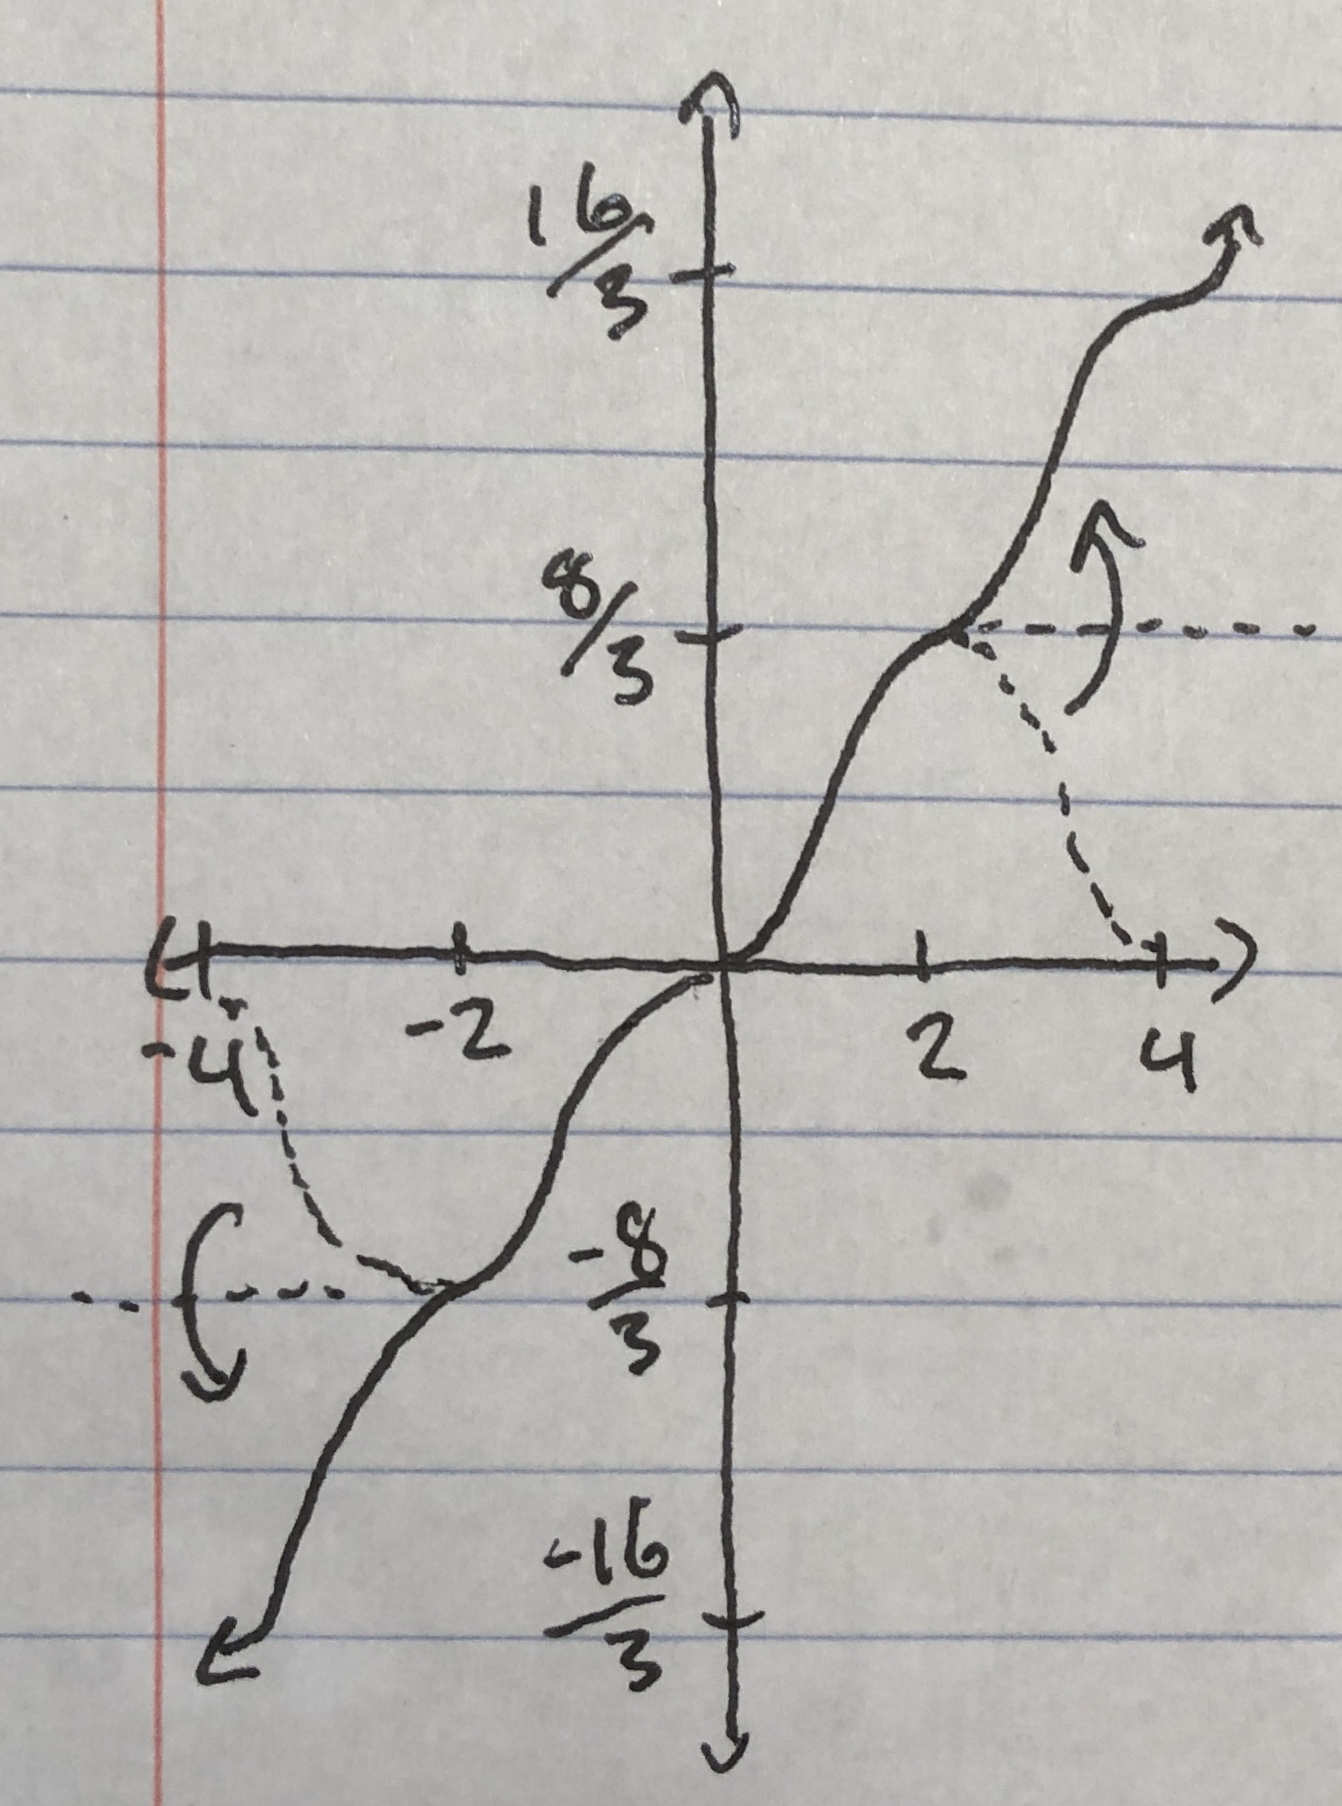 16/3
8/3
-4 -2 2 4
-8/3
-16/3